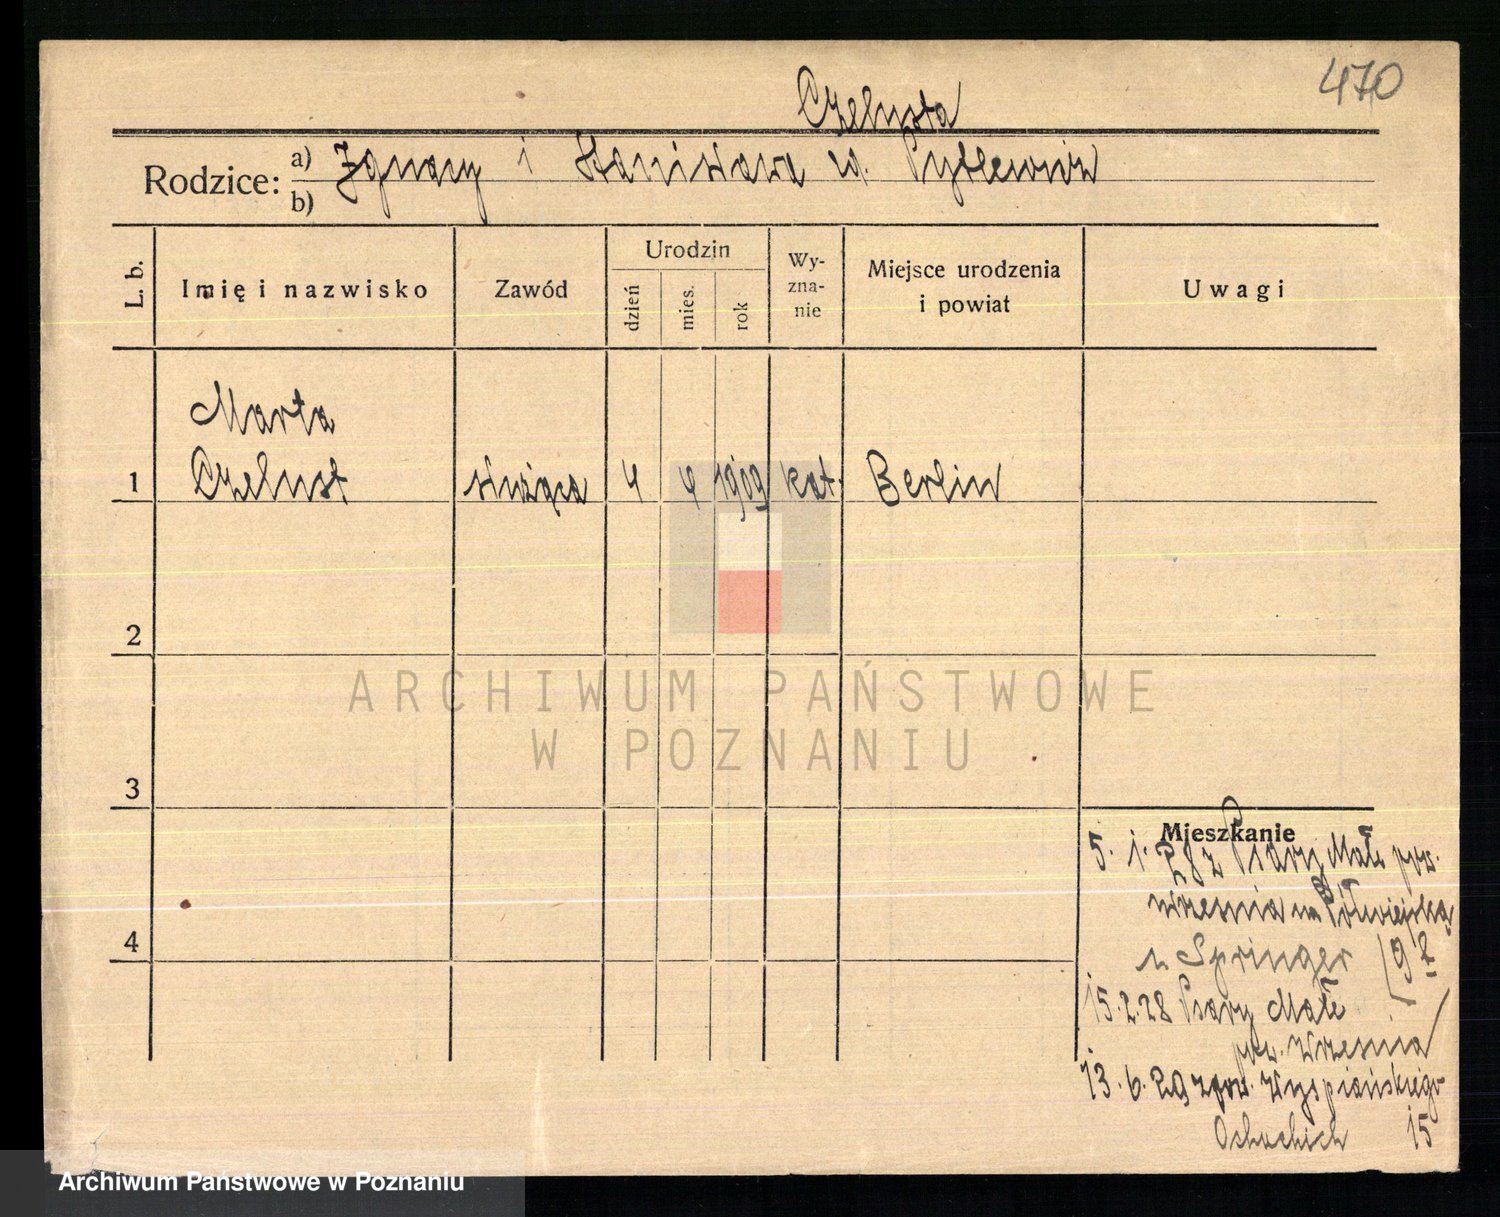 470
Czelusta
Rodzice: a) Ignacy i Stanisława z d. Pytlewicz
b)
L. b. Imię i nazwisko Zawód Urodzin dzień mies. rok Wy-zna-nie Miejsce urodzenia i powiat Uwagi
Marta
1 Czelust służąca 4 4 1909 kat. Berlin
2
ARCHIWUM PAŃSTWOWE
W POZNANIU
3
Mieszkanie
5. 1. 28 z Psary Małe pow.
Września na Półwiejską
u. Springer 9
15.2.28 Psary Małe
pow. Września
4
13.6.29 z pow. Wyspiańskiego
15
Archiwum Państwowe w Poznaniu